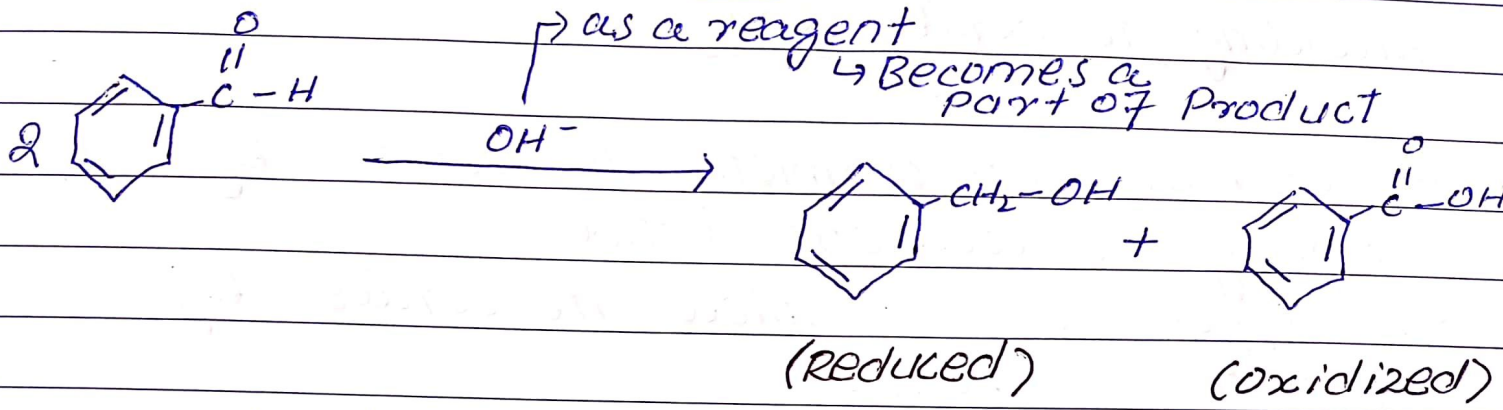 as a reagent
↳ Becomes a
part of Product
O
||
C - H
2
OH⁻
CH₂-OH
+
O
||
C-OH
(Reduced)
(oxidized)